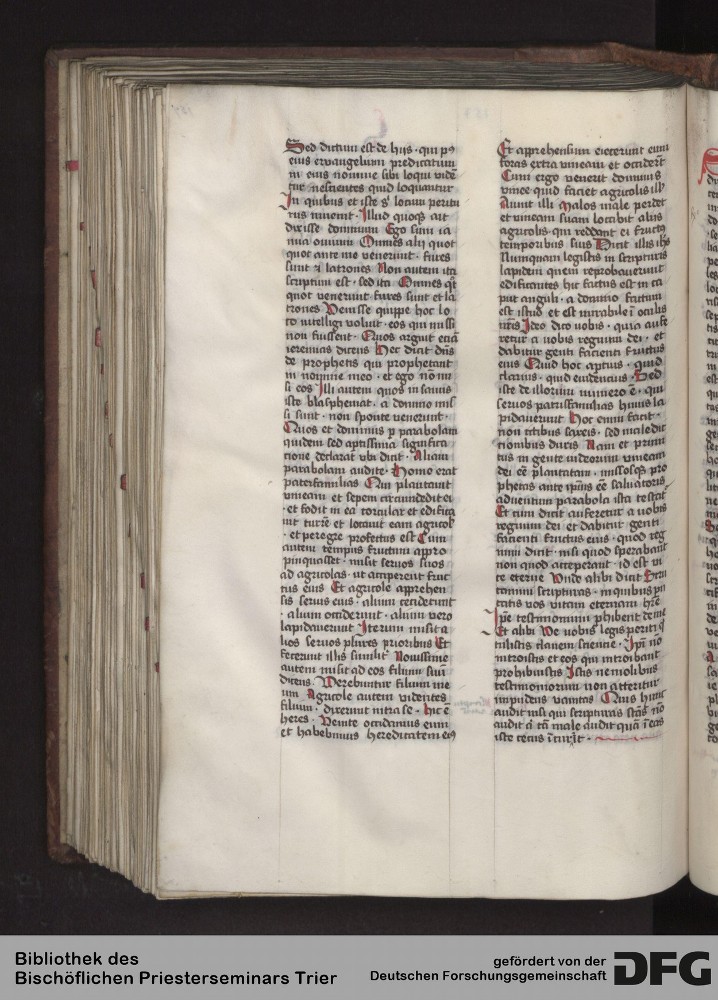 Sed dictum est de hijs · qui p9
eius ewangelium predicatum
in eius nomine sibi loqui vide
tur nescientes quid loquantur
In quibus et iste s locum peritu
rus inuenit · Illud quoqȝ ait
dixisse dominum Ego sum ia
nua ouium Omnes alij quot
quot ante me venerunt · fures
sunt ⁊ latrones Non autem ita
scriptum est · sed ita Omnes qt
quot venerunt fures sunt et la
trones Venisse quippe hoc lo
co intelligi voluit · eos qui missi
non fuissent · Quos arguit eciā
ieremias dicens Hec dicit dn̄s
de prophetis qui prophetant
in nomine meo · et ego nō mi
si eos Illi autem quos insanus
iste blasphemat · a domino mis
si sunt · non sponte venerunt ·
Quos et dominus ꝑ parabolam
quidem sed aptissima significa
cione declarat vbi dicit · Aliam
parabolam audite · Homo erat
paterfamilias Qui plantauit
vineam et sepem circumdedit ei
· et fodit in ea torcular et edifica
uit turrē et locauit eam agricol
· et peregre profectus est Cum
autem tempus fructuum appro
pinquasset · misit seruos suos
ad agricolas · ut acciperent fruc
tus eius Et agricole apprehen
sis seruis eius · alium ceciderunt
· alium occiderunt · alium vero
lapidauerunt Iterum misit a
lios seruos plures prioribus Et
fecerunt illis similit Nouissime
autem misit ad eos filium suū
dicens Verebuntur filium me
um Agricole autem videntes
filium · dixerunt intra se · hic ē
heres · Venite occidamus eum
et habebimus hereditatem ei9
Et apprehensum eiecerunt eum
foras extra vineam et occiderūt
Cum ergo venerit dominus
vinee quid faciet agricolis ill
Aiunt illi Malos male perdet
et vineam suam locabit alijs
agricolis · qui reddant ei fructū
temporibus suis Dicit illis ihs
Numquam legistis in scripturis
lapidem quem reprobauerunt
edificantes hic factus est in ca
put anguli · a domino factum
est istud et est mirabile ī oculis
nr̄is Ideo dico vobis · quia aufe
retur a vobis regnum dei · et
dabitur genti facienti fructus
eius Quid hoc aptius · quid
clarius · quid euidencius · Sed
iste de illorum numero ē · qui
seruos patrisfamilias huius la
pidauerunt Hoc enim facit ·
non ictibus saxeis · sed maledic
tionibus duris Nam et primi
tus in gente iudeorum vineam
dei cē plantatam · missosqȝ pro
phetas ante ipsius cē saluatoris
aduentum parabola ista testat
Et cum dicit auferetur a vobis
regnum dei et dabitur genti
facienti fructus eius · quod reg
num dicit · nisi quod sperabant
non quod acceperant · id est vi
te eterne Vnde alibi dicit Scru
tamini scripturas · in quibus pu
tatis vos vitam eternam hr̄e
Ipē testimonium phibent de me
Et alibi Ve vobis legis periti q
tulistis clauem sciencie · Ipi no
introistis et eos qui introibant
prohibuistis Istis ne molibus
testimoniorum non atteritur
impudens vanitas Quis hunc
audit nisi qui scripturas sanctas nō
audit a tā male audit quā ī eas
iste cecus īcurrit ·
Bibliothek des
Bischöflichen Priesterseminars Trier
gefördert von der
Deutschen Forschungsgemeinschaft
DFG